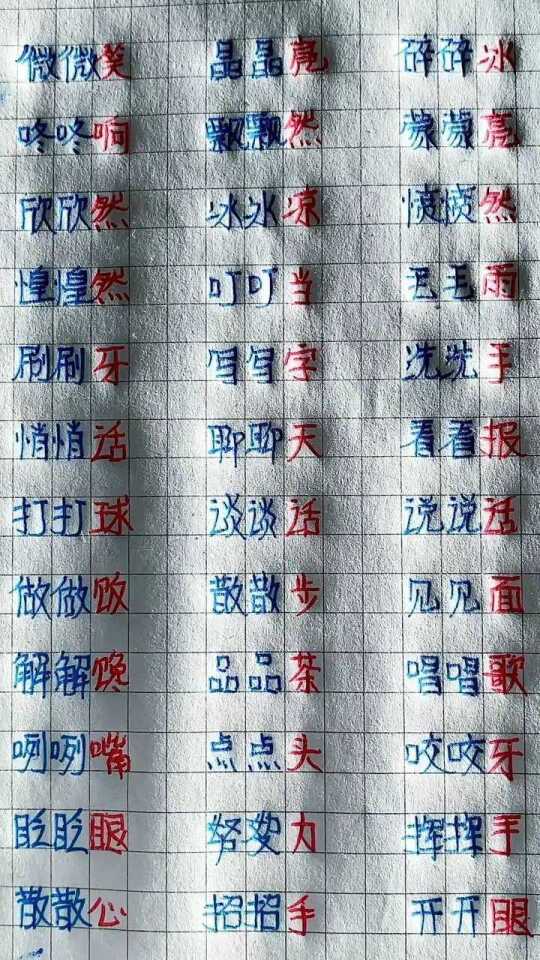 微微笑 晶晶亮 碎碎冰
咚咚响 飘飘然 蒙蒙亮
欣欣然 冰冰凉 愤愤然
惶惶然 叮叮当 毛毛雨
刷刷牙 写写字 洗洗手
悄悄话 聊聊天 看看报
打打球 谈谈话 说说话
做做饭 散散步 见见面
解解馋 品品茶 唱唱歌
咧咧嘴 点点头 咬咬牙
眨眨眼 努努力 挥挥手
散散心 招招手 开开眼